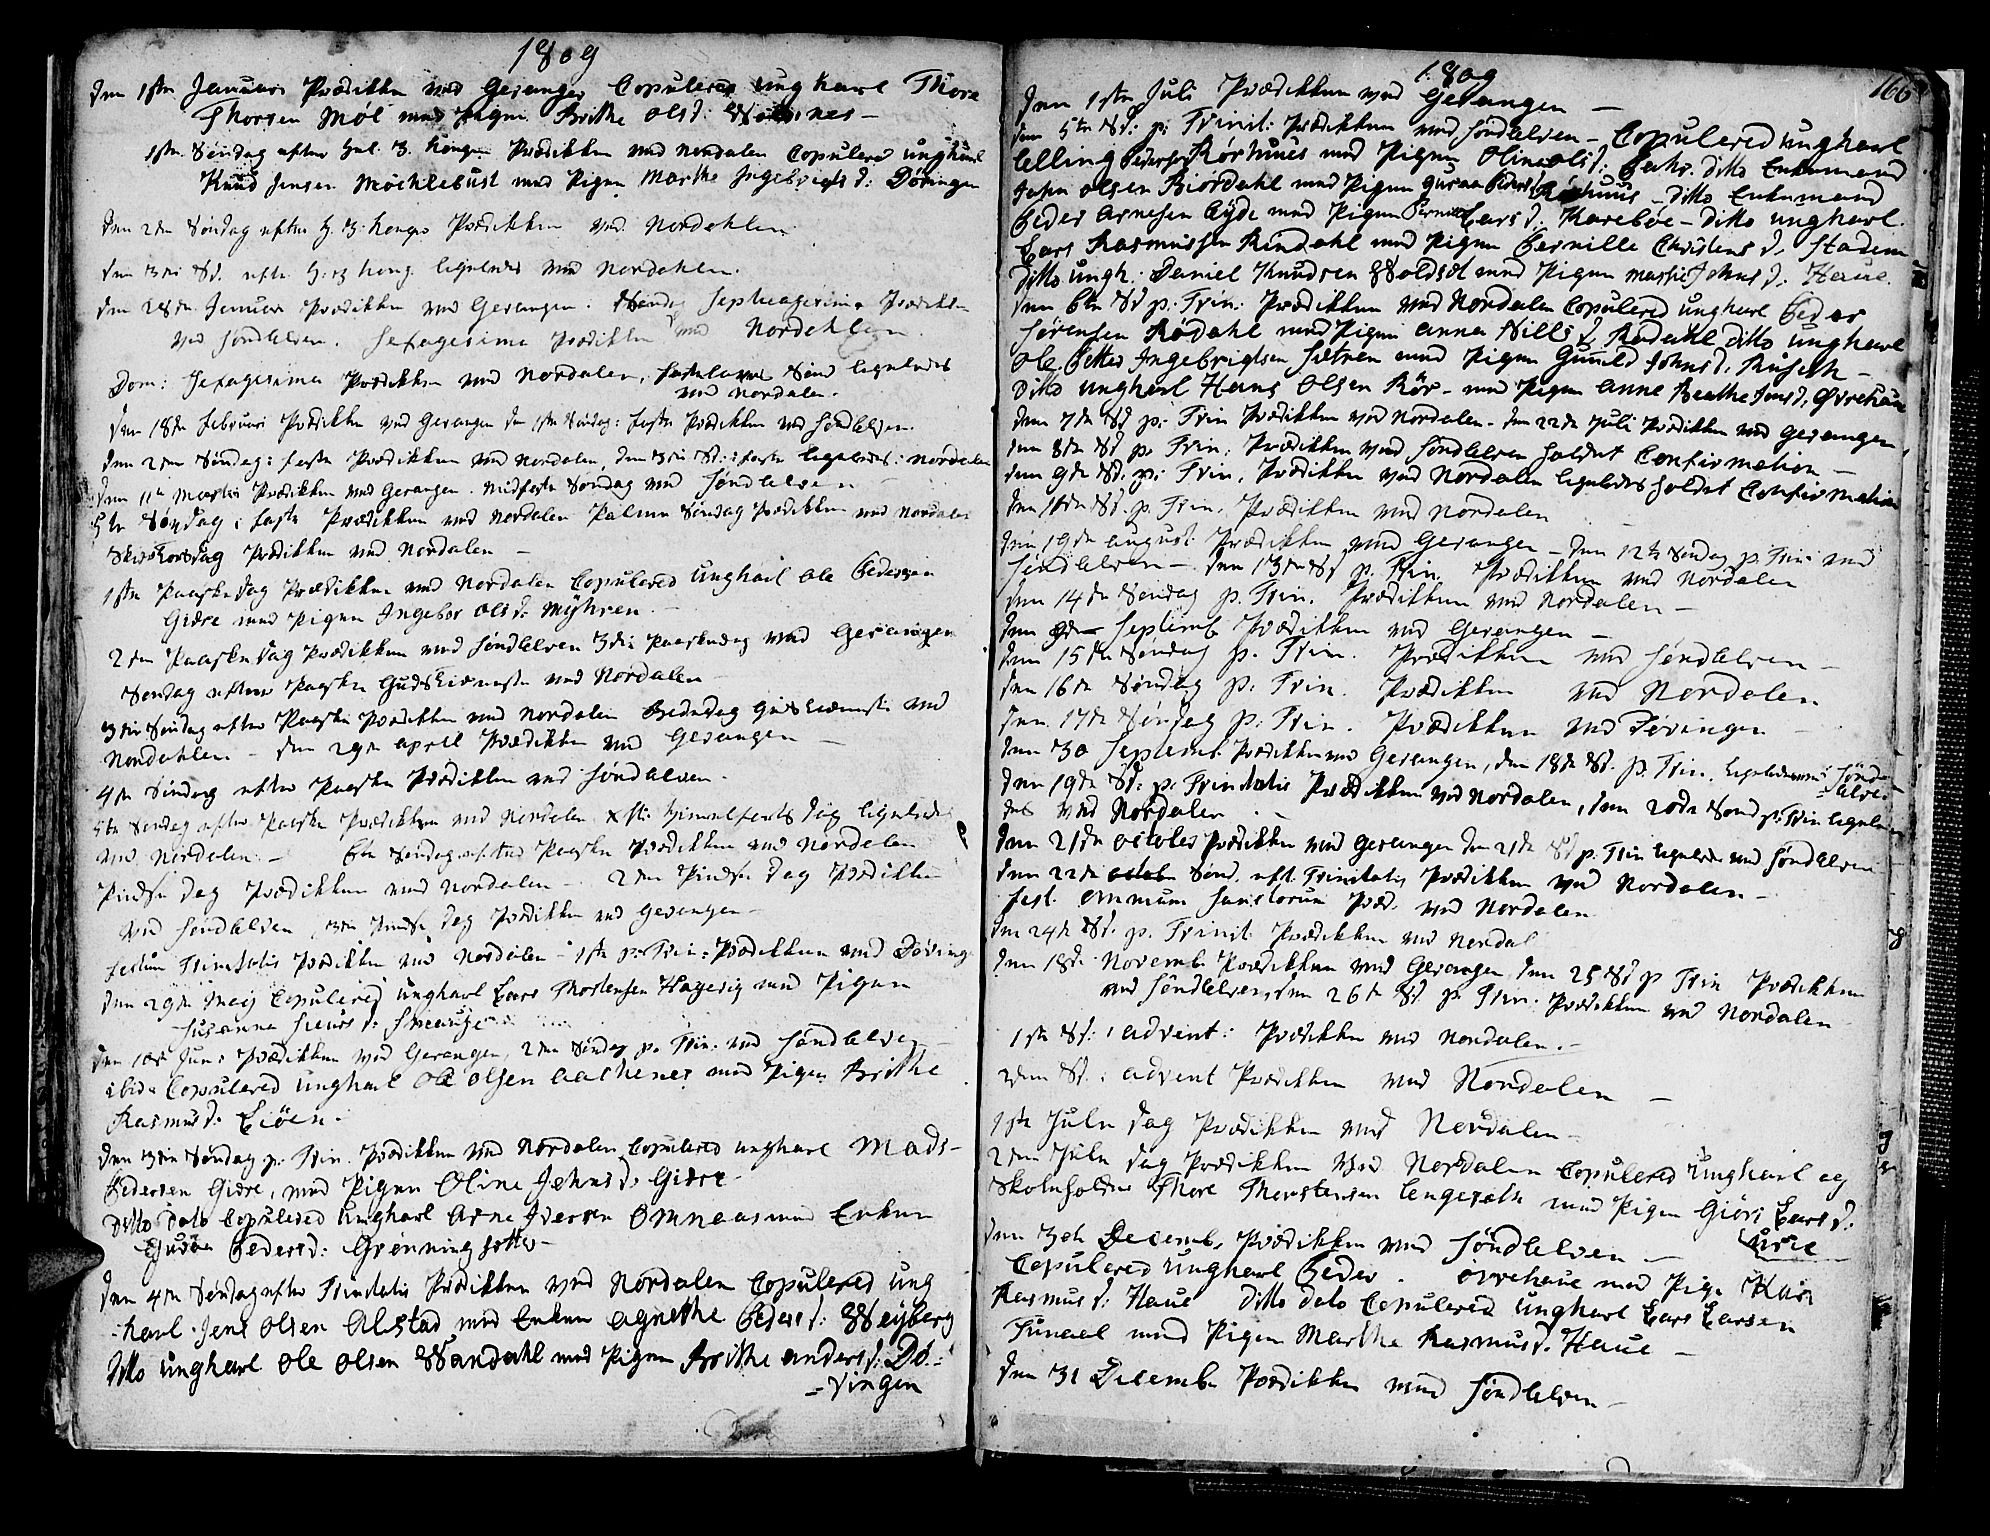 1809
Den 1ste Januari Prædiken ved Geranger Copulered ungkarl Thore
Thorsen Møl med Pigen Brithe Olsd:
1ste Søndag efter Hel. 3. Konger Prædiken ved Nordalen Copulered ungkarl
Knud Jensen Møchlebust med Pigen Marthe Ingebrigtsd: Døvingen
Den 2den Søndag efter H. 3. Konger Prædiken ved Nordahlen
den 3die Sd. efter H: 3 Kong. ligeledes ved Nordahlen.
den 28de Januari Prædiken ved Gerangen. Søndag Septuagesima Prædiken
ved Søndalven. Sexagesima Prædiken ved Nordahlen
Dom: Sexagesima Prædiken ved Nordalen, Fastelavns Sønd ligeledes
ved Nordalen.
Den 18de Februari Prædiken ved Gerangen den 1ste Søndag i Faste Prædiken ved Søndalven.
den 2den Søndag i Faste Prædiken ved Nordalen, den 3die Sd: i Faste ligeledes i Nordalen
den 11te Martii Prædiken ved Gerangen. Midfaste Søndag ved Søndalven
5te Søndag i Faste Prædiken ved Nordalen Palme Søndag Prædiken ved Nordalen
Skiertorsdag Prædiken ved Nordalen –
1ste Paaskedag Prædiken ved Nordalen Copulered Ungkarl Ole Pedersen
Giære med Pigen Ingebor Olsd: Myhren –
2den Paaskedag Prædiken ved Søndalven 3die Paaskedag ved Gerangen
Søndag efter Paaske Gudstieneste ved Nordalen
3die Søndag efter Paaske Prædiken ved Nordalen Bededag Gudstieneste ved
Nordahlen – den 29de April Prædiken ved Gerangen –
4de Søndag efter Paaske Prædiken ved Søndalven.
5te Søndag efter Paaske Prædiken ved Nordalen Xsti Himmelfarts dag ligeledes
ved Nordalen – 6te Søndag efter Paaske Prædiken ved Nordalen
Pindse dag Prædiken ved Nordalen – 2den Pindse dag Prædiken
ved Søndalven, 3die Pindse dag Prædiken ved Gerangen –
Festum Trinitatis Prædiken ved Nordalen – 1ste p: Trin: Prædiken ved Døving
den 29de Maij Copulered Ungkarl Lars Thorstensen Hagevig med Pigen
Susanna Siurs d:
den 10de Juni Prædiken ved Gerangen, 2den Søndag p. Trin: ved Søndalven
ibid: Copulered ungkarl Ole Olsen med Pigen Brithe
Rasmusd: Liøen.
den 3die Søndag p: Trin. Prædiken ved Nordalen Copulered ungkarl Mads
Pedersen Giære, med Pigen Oline Johnsd: Giære
Ditto dato Copulered Ungkarl Arne Iversen Omneas med Enken
Pedersd: Grønningsætter –
den 4de Søndag efter Trinitatis Prædiken ved Nordalen Copulered ung
-karl Jens Olsen Alstad med Enken Agnethe Pedersd: Weiberg
Ditto Ungkarl Ole Olsen Wandahl med Pigen Brithe Andersd: Dø-
-vingen
166
1809
Den 1ste Juli Prædiken ved Gerangen –
den 5te Sd: p: Trinit: Prædiken ved Søndalven – Copulered ungkarl
Elling Pedersen Rørhuus med Pigen Oline Olsd. ditto Enkemand
John Olsen Biordahl med Pigen Guroe Pedersd Rørhuus – ditto Enkemand
Peder Arnesen Eyde med Pigen Pernille Larsd: Karebøe – ditto ungkarl
Lars Rasmussen Rindahl med Pigen Pernille Christensd. Staden
ditto ungk. Daniel Knudsen Woldset med Pigen Marthe Johnsd: Haue.
den 6te Sd p: Trin: Prædiken ved Nordalen Copulered ungkarl Peder
Sørensen Rødahl med Pigen Anna Nillsd. Rødahl ditto ungkarl
Ole Petter Ingebrigtsen Sætren med Pigen Gunild Johnsd. Ruset –
ditto ungkarl Hans Olsen Rør – med Pigen Anne Beathe Jensd, Øvrehaue
den 7de Sd p: Trin Prædiken ved Nordalen – den 22de Juli Prædiken ved Gerangen,
den 8de Sd p: Trin: Prædiken ved Søndalven holdet Confirmation –
den 9de Sd. p: Trin. Prædiken ved Nordalen ligeledes holdet Confirmation
den 10de Sd. p. Trin. Prædiken ved Nordalen
den 19de August: Prædiken ved Gerangen – den 12te Søndag p. Trin ved
Søndalven – den 13de Sd p. Trin. Prædiken ved Nordalen
den 14de Søndag p. Trin. Prædiken ved Nordalen –
den 9de Septemb Prædiken ved Gerangen –
den 15de Søndag p. Trin. Prædiken ved Søndalven –
den 16de Søndag p: Trin. Prædiken ved Nordalen
den 17de Søndag p: Trin. Prædiken ved Døvingen –
den 30 Septemb Prædiken ved Gerangen, den 18de Sd. p. Trin. ligeledes ved Sønd-
alven
den 19de Sd: p: Trinitatis Prædiken ved Nordalen, den 20de Sønd p: Trin ligele-
des ved Nordalen
den 21de October Prædiken ved Gerangen den 21de Sd p. Trin ligeledes ved Søndalven
den 22de Sønd. eft. Trinitatis Prædiken ved Nordalen –
Fest. Omnium Sanctorum Præd. ved Nordalen
den 24de Sd. p. Trinit. Prædiken ved Nordal
den 18de Novemb. Prædiken ved Gerangen den 25 Sd p Trin Prædiken
ved Søndalven, den 26de Sd p Trin. Prædiken ved Nordalen
1ste Sd: i Advent: Prædiken ved Nordalen. –
2den Sd: i Advent Prædiken ved Nordalen –
1ste Jule dag Prædiken ved Nordalen –
2den Jule dag Prædiken ved Nordalen Copulered Ungkarl og
Skoleholder Thore Thorstensen Lengesæter med Pigen Giøri Larsd:
Liøe
den 30te Decemb. Prædiken ved Søndalven –
Copulered Ungkarl Peder . Øvrehaue med Pige Kari
Rasmusd: Haue ditto dato Copulered Ungkarl Lars Larsen
med Pigen Marthe Rasmusd. Haue –
den 31 Decemb. Prædiken ved Søndalven –